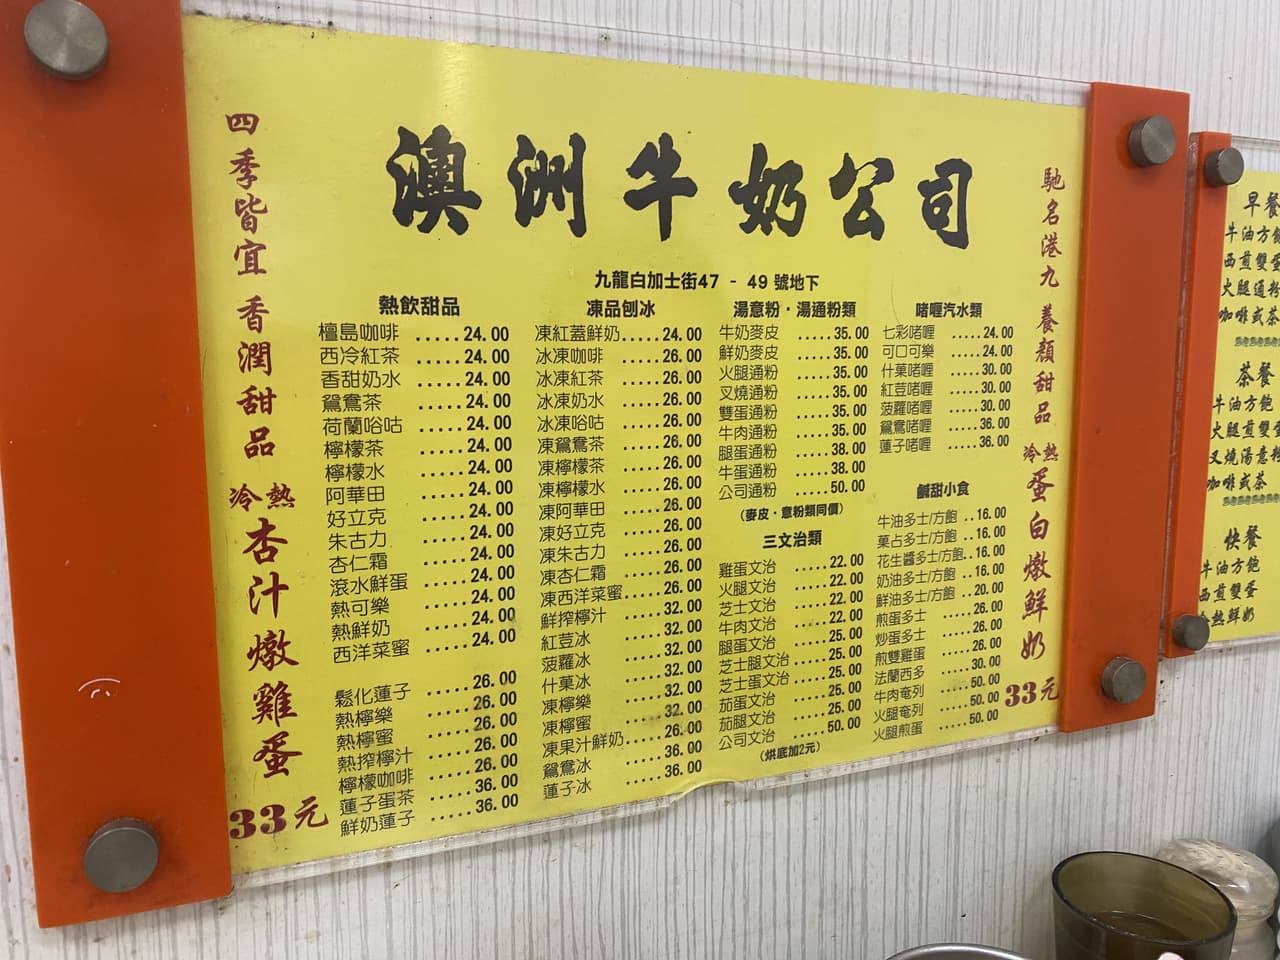 澳洲牛奶公司
九龍白加士街47 - 49 號地下
四季皆宜 香潤甜品
冷熱
杏汁燉雞蛋
33元
熱飲甜品
檀島咖啡 .....24.00
西冷紅茶 .....24.00
香甜奶水 .....24.00
鴛鴦茶 .....24.00
荷蘭唂咕 .....24.00
檸檬茶 .....24.00
檸檬水 .....24.00
阿華田 .....24.00
好立克 .....24.00
朱古力 .....24.00
杏仁霜 .....24.00
滾水鮮蛋 .....24.00
熱可樂 .....24.00
熱鮮奶 .....24.00
西洋菜蜜 .....24.00
鬆化蓮子 .....26.00
熱檸樂 .....26.00
熱檸蜜 .....26.00
熱搾檸汁 .....26.00
檸檬咖啡 .....26.00
蓮子蛋茶 .....36.00
鮮奶蓮子 .....36.00
凍品刨冰
凍紅蓋鮮奶.....24.00
冰凍咖啡 .....26.00
冰凍紅茶 .....26.00
冰凍奶水 .....26.00
冰凍唂咕 .....26.00
凍鴛鴦茶 .....26.00
凍檸檬茶 .....26.00
凍檸檬水 .....26.00
凍阿華田 .....26.00
凍好立克 .....26.00
凍朱古力 .....26.00
凍杏仁霜 .....26.00
凍西洋菜蜜.....26.00
鮮搾檸汁 .....32.00
紅荳冰 .....32.00
菠蘿冰 .....32.00
什菓冰 .....32.00
凍檸樂 .....32.00
凍檸蜜 .....32.00
凍果汁鮮奶.....26.00
鴛鴦冰 .....36.00
蓮子冰 .....36.00
湯意粉．湯通粉類
牛奶麥皮 .....35.00
鮮奶麥皮 .....35.00
火腿通粉 .....35.00
叉燒通粉 .....35.00
雙蛋通粉 .....35.00
牛肉通粉 .....35.00
腿蛋通粉 .....38.00
牛蛋通粉 .....38.00
公司通粉 .....50.00
(麥皮．意粉類同價)
三文治類
雞蛋文治 .....22.00
火腿文治 .....22.00
芝士文治 .....22.00
牛肉文治 .....22.00
腿蛋文治 .....25.00
芝士腿文治 .....25.00
芝士蛋文治 .....25.00
茄蛋文治 .....25.00
茄腿文治 .....25.00
公司文治 .....50.00
(烘底加2元)
啫喱汽水類
七彩啫喱 .....24.00
可口可樂 .....24.00
什菓啫喱 .....30.00
紅荳啫喱 .....30.00
菠蘿啫喱 .....30.00
鴛鴦啫喱 .....36.00
蓮子啫喱 .....36.00
鹹甜小食
牛油多士/方飽 ..16.00
菓占多士/方飽 ..16.00
花生醬多士/方飽..16.00
奶油多士/方飽 ..16.00
鮮油多士/方飽 ..20.00
煎蛋多士 .....26.00
炒蛋多士 .....26.00
煎雙雞蛋 .....26.00
法蘭西多 .....30.00
牛肉奄列 .....50.00
火腿奄列 .....50.00
火腿煎蛋 .....50.00
馳名港九 養顏甜品
冷熱
蛋白燉鮮奶
33元
早餐
牛油方飽
西煎雙蛋
火腿通粉
咖啡或茶
茶餐
牛油方飽
火腿煎雙蛋
叉燒湯意粉
咖啡或茶
快餐
牛油方飽
西煎雙蛋
熱鮮奶